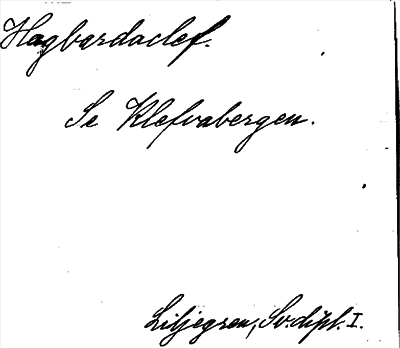 Hagbardaclef.
Se Klefvabergen.
Liljegren, Sv. dipl. I.